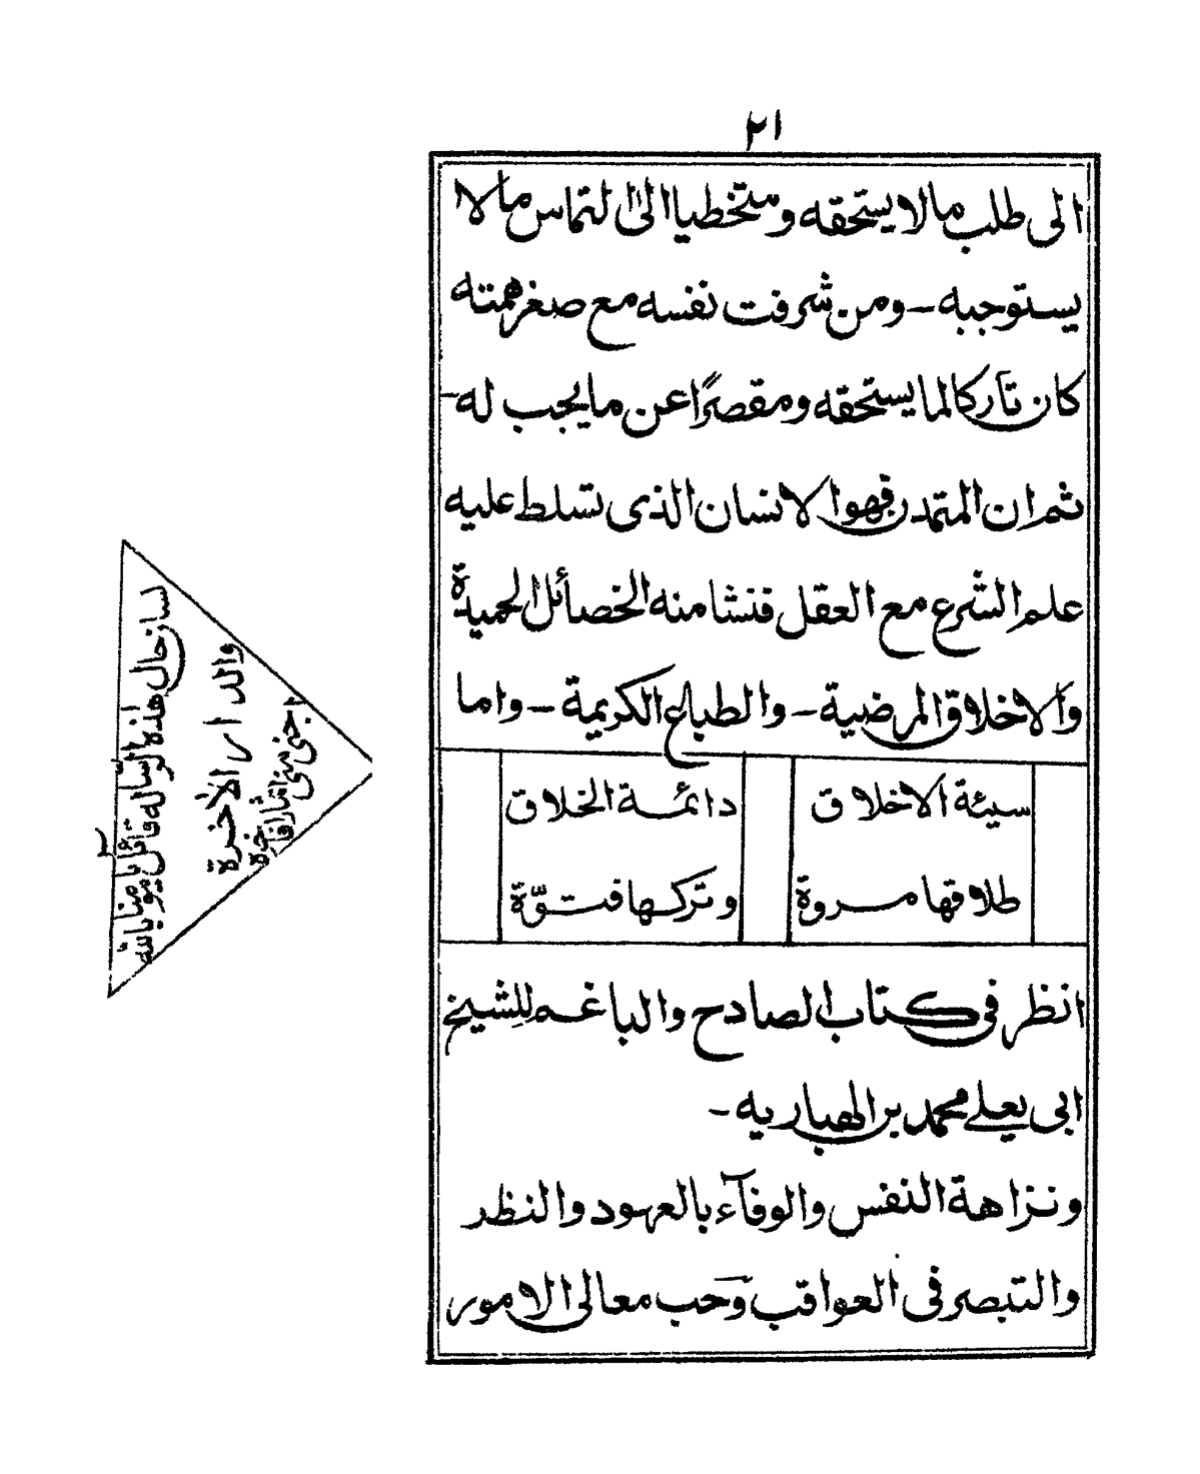 ٢١
الى طلب مالا يستحقه ومتخطيا الى التماس مالا
يستوجبه - ومن شرفت نفسه مع صغر همته
كان تاركا لما يستحقه ومقصرًا عن ما يجب له -
ثم ان المتمدن فهوا لانسان الذى تسلط عليه
علم الشرع مع العقل فنشا منه الخصائل الحميدة
والاخلاق المرضية - والطباع الكريمة - واما
سيئة الاخلاق دائمة الخلاق
طلاقها مروة وتركها فتوّة
انظر فى كتاب الصادح والباغم للشيخ
ابى يعلے محمد بن الهباريه -
ونزاهة النفس والوفآء بالعهود والنظر
والتبصر فى العواقب وحب معالى الامور
لسان حال هذه الرسالة قائل يا مؤمنا بالله
والدار الآخرة
اجنى منى